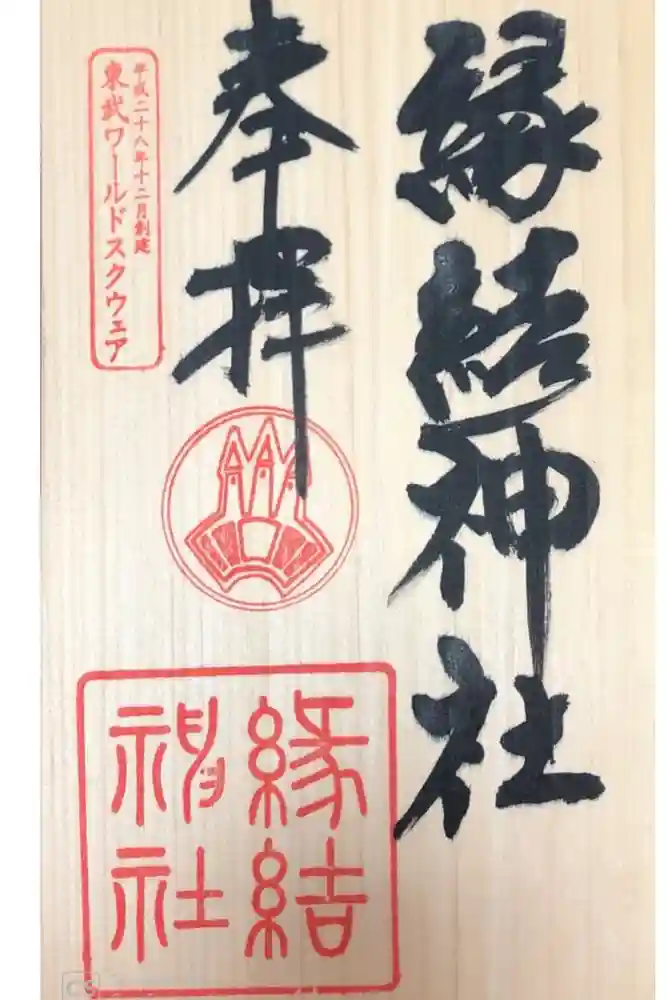 縁結神社
奉拝
平成二十八年十二月創建
東武ワールドスクウェア
縁結
神社